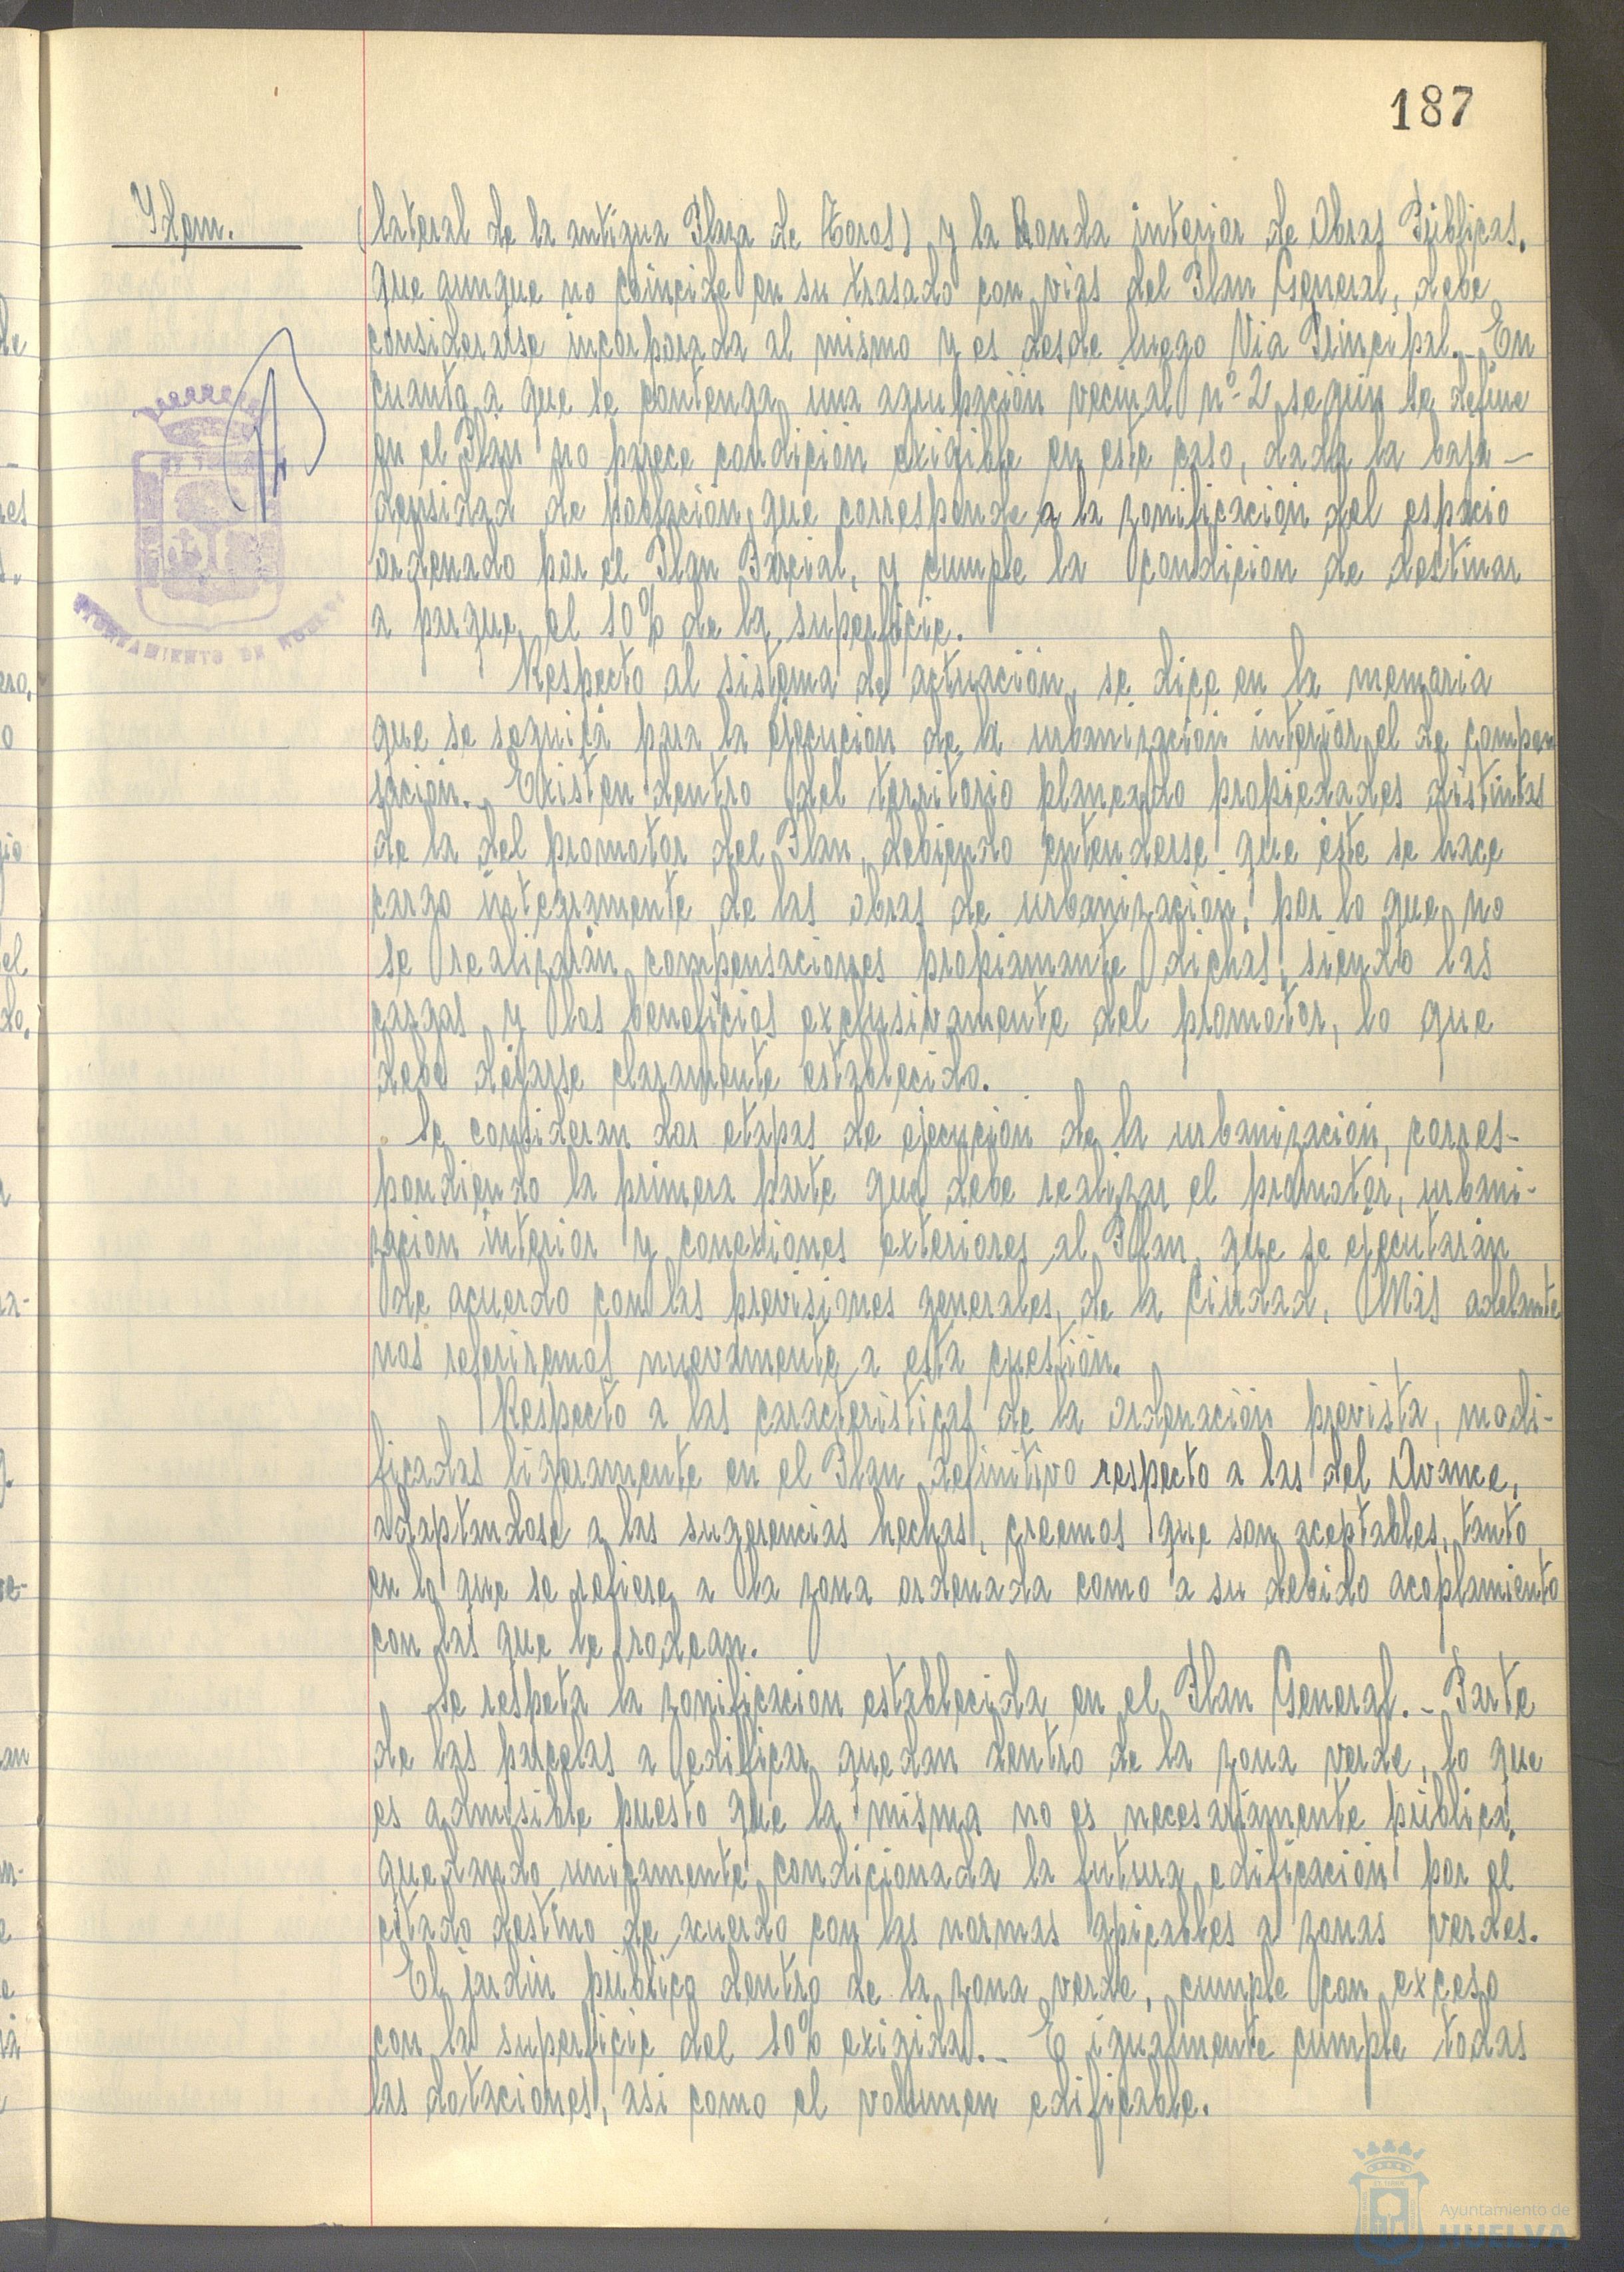 187
Ydem.
(lateral de la antigua Plaza de Toros) y la Ronda interior de Obras Públicas,
que aunque no coincide en su trasado con vias del Plan General, debe
considerarse incorporada al mismo y es desde luego Via Principal.- En
cuanto a que se contenga una agrupación vecinal nº 2 según se define
en el Plan no parece condición exigible en este caso, dada la baja -
densidad de población, que corresponde a la zonificación del espacio
ordenado por el Plan Parcial, y cumple la condición de destinar
a parque el 10% de la superficie.
Respecto al sistema de actuación, se dice en la memoria
que se seguirá para la ejecución de la urbanización interior el de compen
sación.- Existen dentro del territorio planeado propiedades distintas
de la del promotor del Plan, debiendo entenderse que éste se hace
cargo integramente de las obras de urbanización, por lo que no
se realizarán compensaciones propiamante dichas, siendo las
cargas y los beneficios exclusivamente del promotor, lo que
debe dejarse claramente establecido.
Se consideran dos etapas de ejecución de la urbanización, corres-
pondiendo la primera parte que debe realizar el promotor, urbani-
zación interior y conexiones exteriores al Plan, que se ejecutarán
de acuerdo con las previsiones generales, de la Ciudad. Más adelante
nos referiremos nuevamente a esta cuestión.
Respecto a las caracteristicas de la ordenación prevista, modi-
ficadas ligeramente en el Plan definitivo respecto a las del Avance,
adaptandose a las sugerencias hechas, creemos que son aceptables, tanto
en lo que se refiere a la zona ordenada como a su debido acoplamiento
con las que le rodean.
Se respeta la zonificación establecida en el Plan General.- Parte
de las parcelas a edificar quedan dentro de la zona verde, lo que
es admisible puesto que la misma no es necesariamente pública,
quedando unicamente condicionada la futura edificación por el
citado destino de acuerdo con las normas apicables a zonas verdes.
El jardin público dentro de la zona verde, cumple con exceso
con la superficie del 10% exigida.- E igualmente cumple todas
las dotaciones, asi como el volumen edificable.
AYUNTAMIENTO DE HUELVA
Ayuntamiento de
HUELVA